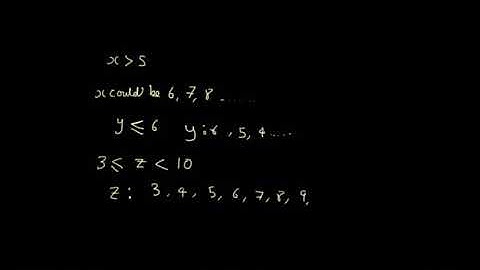 x > 5
x could be 6, 7, 8 .......
y ≤ 6 y : 6, 5, 4 ....
3 ≤ z < 10
z : 3, 4, 5, 6, 7, 8, 9,